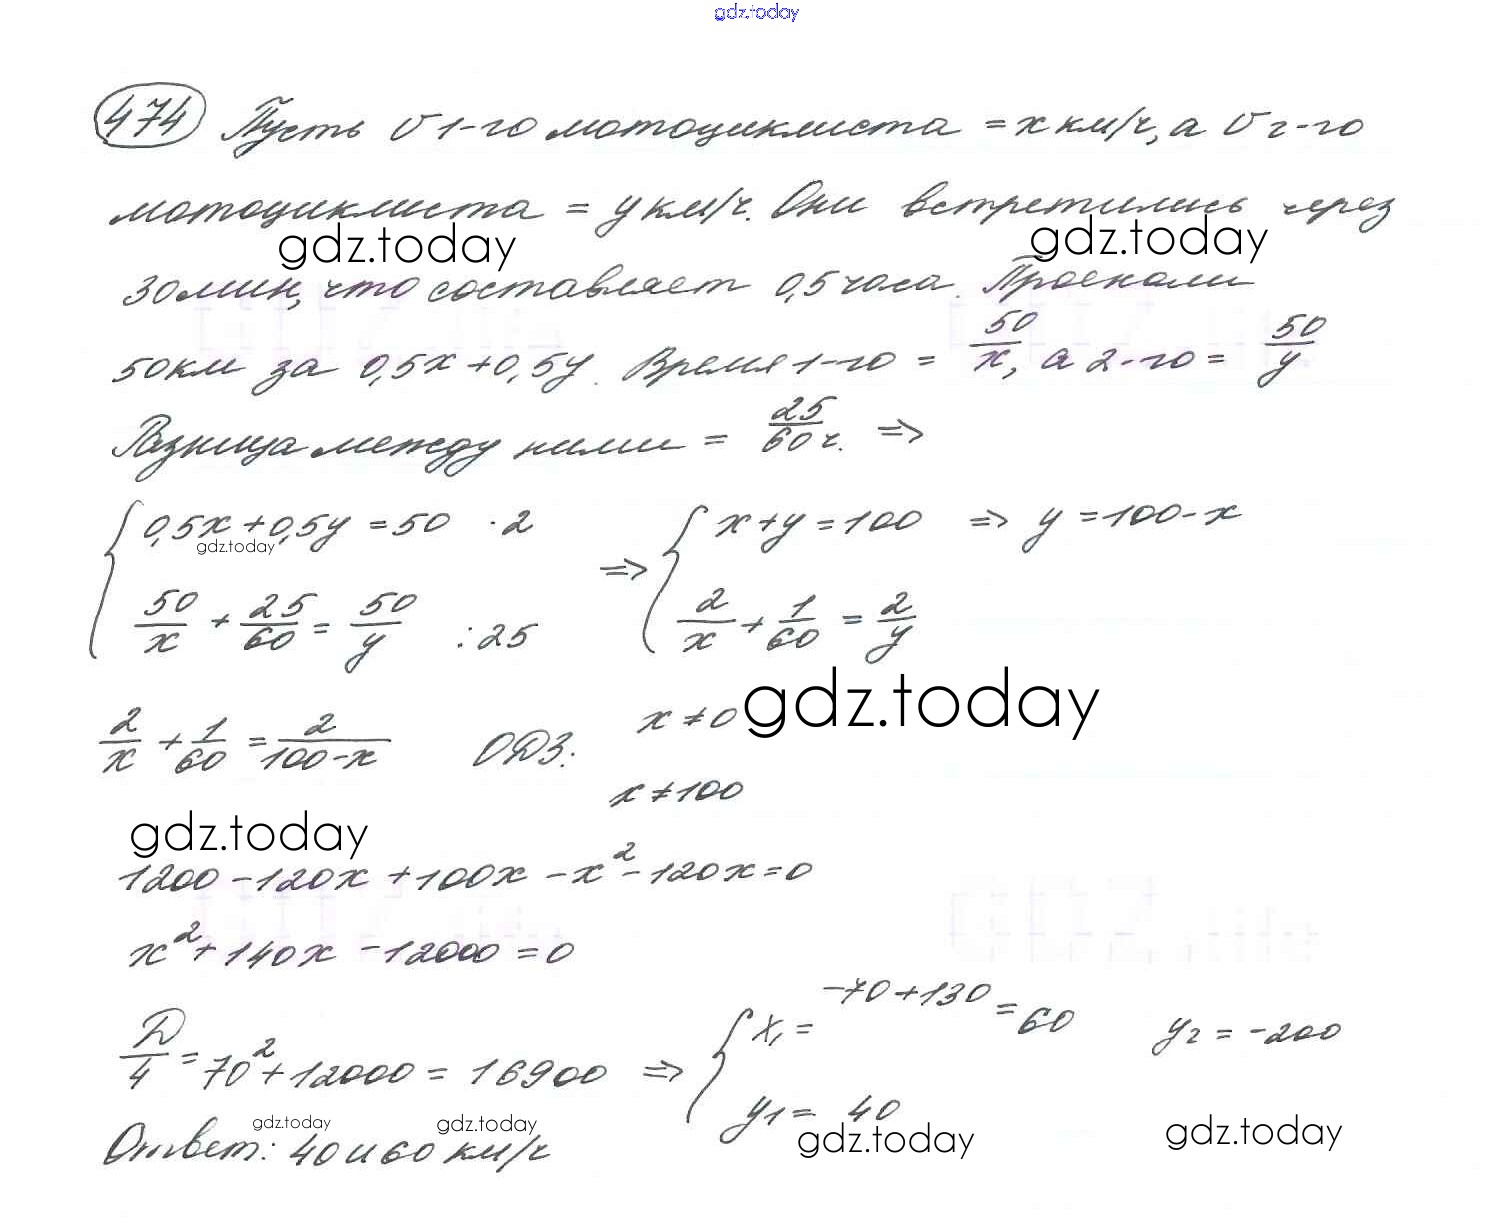 gdz.today
474 Пусть v 1-го мотоциклиста = x км/ч, а v 2-го
мотоциклиста = y км/ч. Они встретились через
gdz.today gdz.today
30 мин, что составляет 0,5 часа. Проехали
50 км за 0,5x + 0,5y. Время 1-го = 50/x, а 2-го = 50/y
Разница между ними = 25/60 ч. =>
{ 0,5x + 0,5y = 50 · 2 => { x + y = 100 => y = 100 - x
gdz.today
50/x + 25/60 = 50/y : 25 2/x + 1/60 = 2/y
gdz.today
2/x + 1/60 = 2/(100-x) ОДЗ: x ≠ 0
x ≠ 100
gdz.today
1200 - 120x + 100x - x² - 120x = 0
x² + 140x - 12000 = 0
Д/4 = 70² + 12000 = 16900 => { x₁ = -70 + 130 = 60 y₂ = -200
y₁ = 40
gdz.today gdz.today gdz.today gdz.today
Ответ: 40 и 60 км/ч